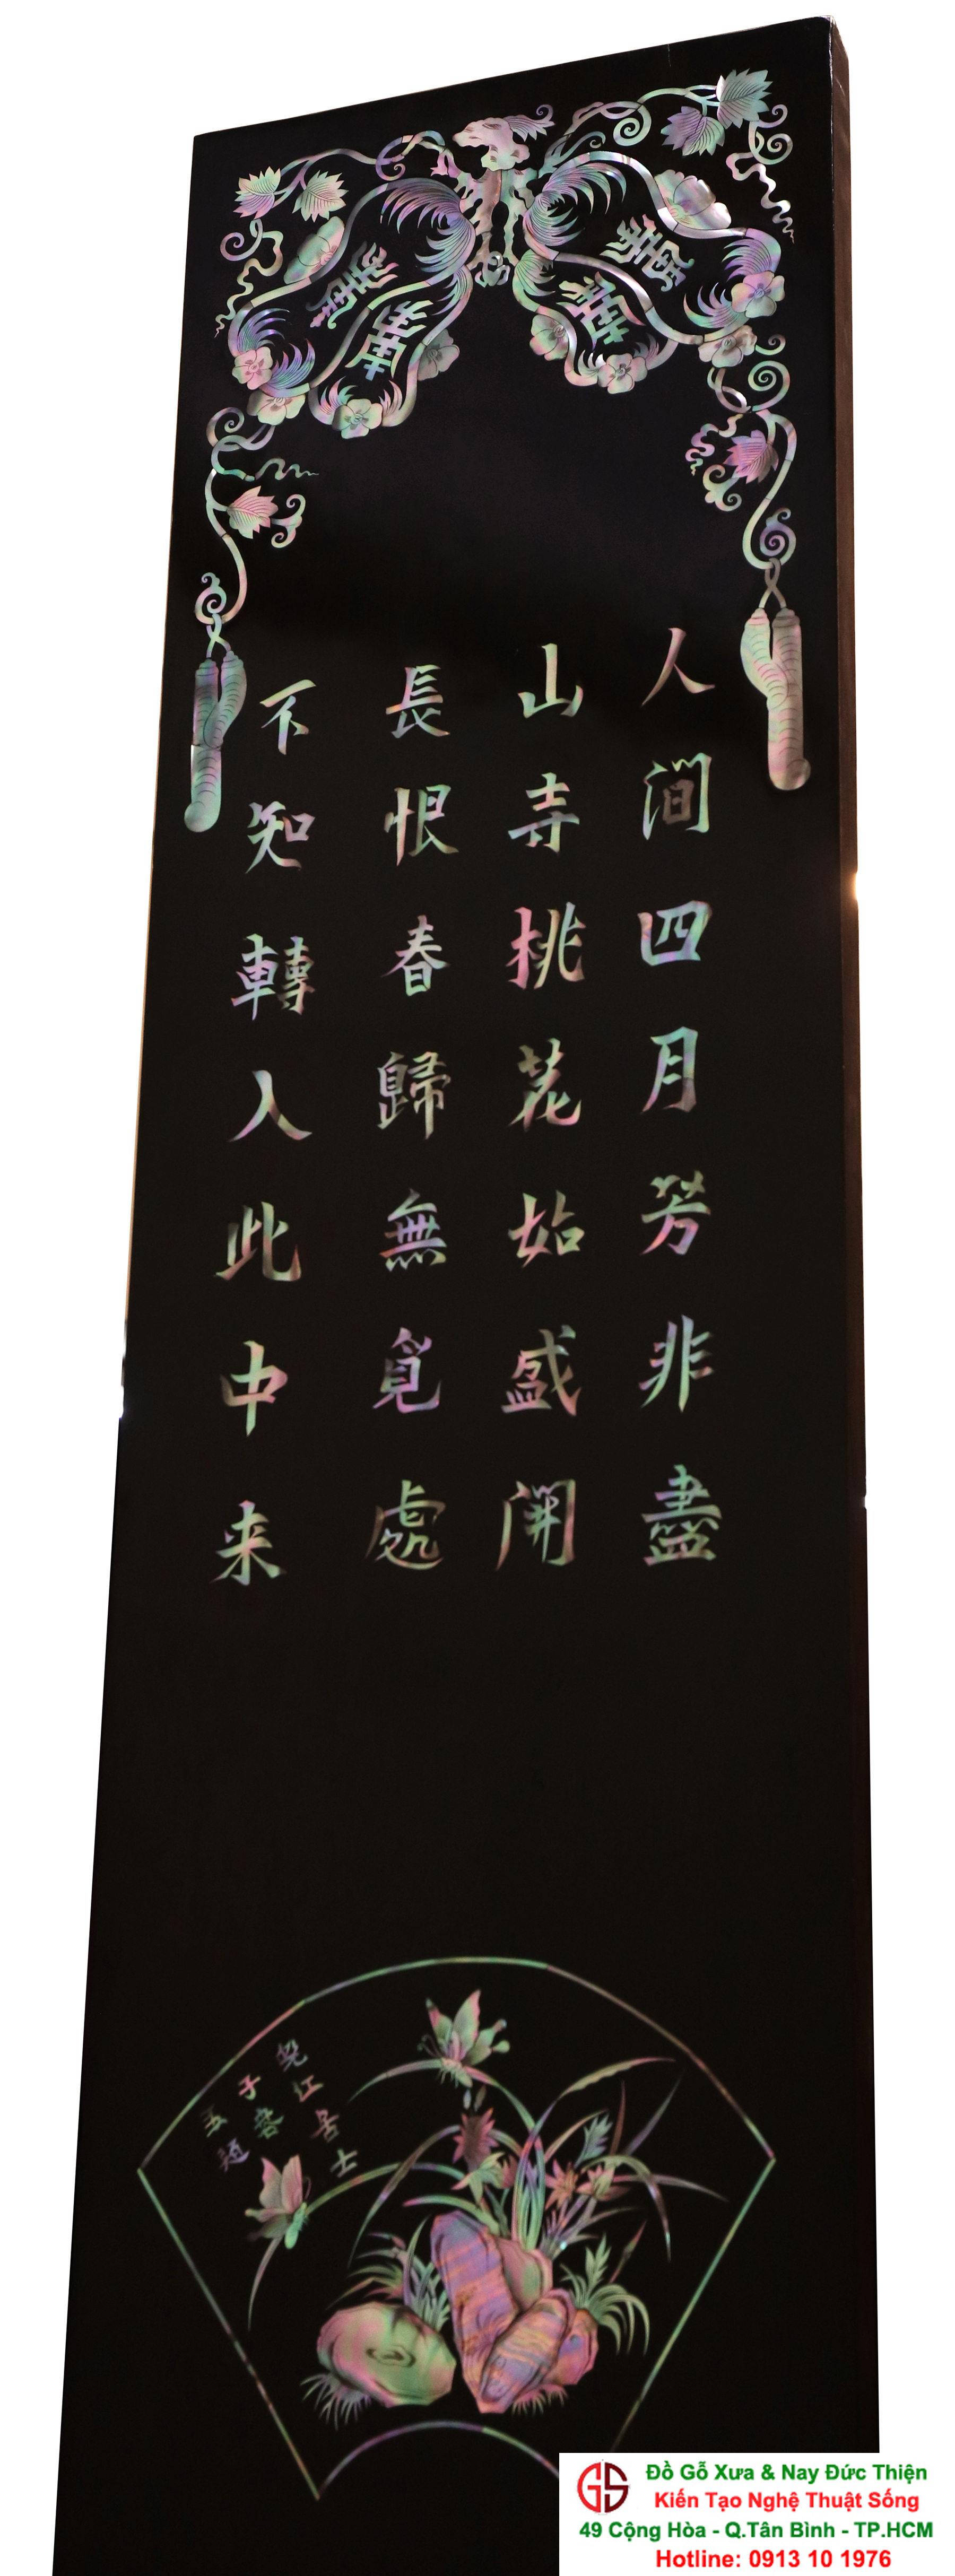 人間四月芳非盡
山寺桃花始盛開
長恨春歸無覓處
不知轉入此中来
江居士
子
Đồ Gỗ Xưa & Nay Đức Thiện
Kiến Tạo Nghệ Thuật Sống
49 Cộng Hòa - Q.Tân Bình - TP.HCM
Hotline: 0913 10 1976